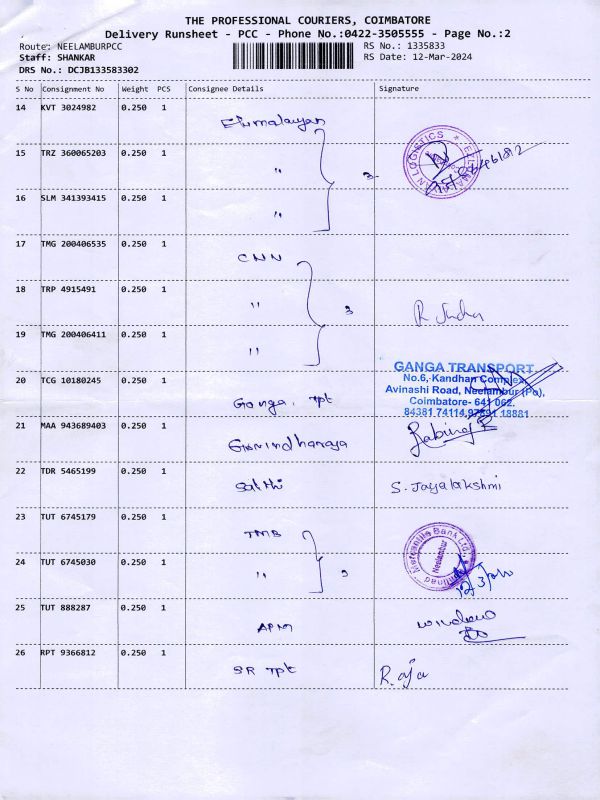 THE PROFESSIONAL COURIERS, COIMBATORE
Delivery Runsheet - PCC - Phone No.:0422-3505555 - Page No.:2
Route: NEELAMBURPCC
RS No.: 1335833
Staff: SHANKAR
RS Date: 12-Mar-2024
DRS No.: DCJB133583302
S No Consignment No Weight PCS Consignee Details Signature
14 KVT 3024982 0.250 1
15 TRZ 360065203 0.250 1 "
16 SLM 341393415 0.250 1 "
17 TMG 200406535 0.250 1 CNN
18 TRP 4915491 0.250 1 " 3
19 TMG 200406411 0.250 1 "
GANGA TRANSPORT
No.6, Kandhan Complex,
Avinashi Road, Neelambur (Po),
Coimbatore- 641 062.
84381 74114, 97891 18881
20 TCG 10180245 0.250 1 Ganga. Tpt
21 MAA 943689403 0.250 1
22 TDR 5465199 0.250 1 Sakthi S. Jayalakshmi
23 TUT 6745179 0.250 1 TMB
Mercantile Bank Ltd.
Neelambur
24 TUT 6745030 0.250 1 "
25 TUT 888287 0.250 1 APM
26 RPT 9366812 0.250 1 SR Tpt R. Raja